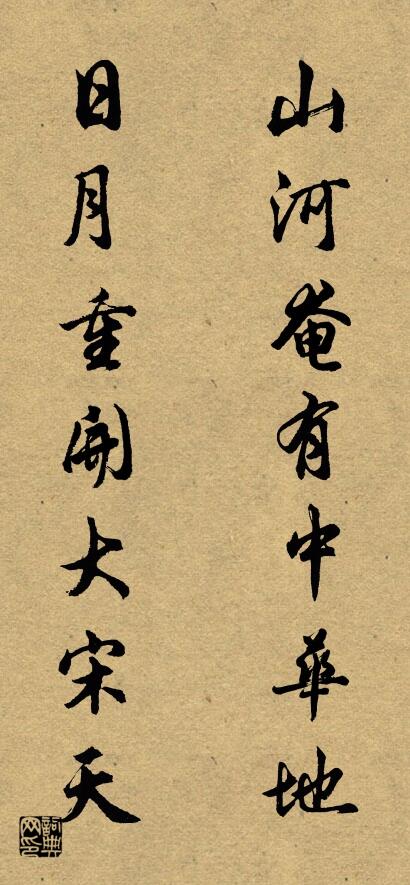 山河奄有中華地
日月重開大宋天
詞典網印